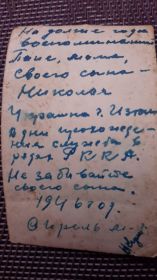 На долгие года
воспоминания
Папе, мама,
своего сына -
Николая
Украина г. Изюм
в дни прохожде-
ния службы в
рядах РККА.
Не забывайте
своего сына.
1946 год.
Апрель м-ц